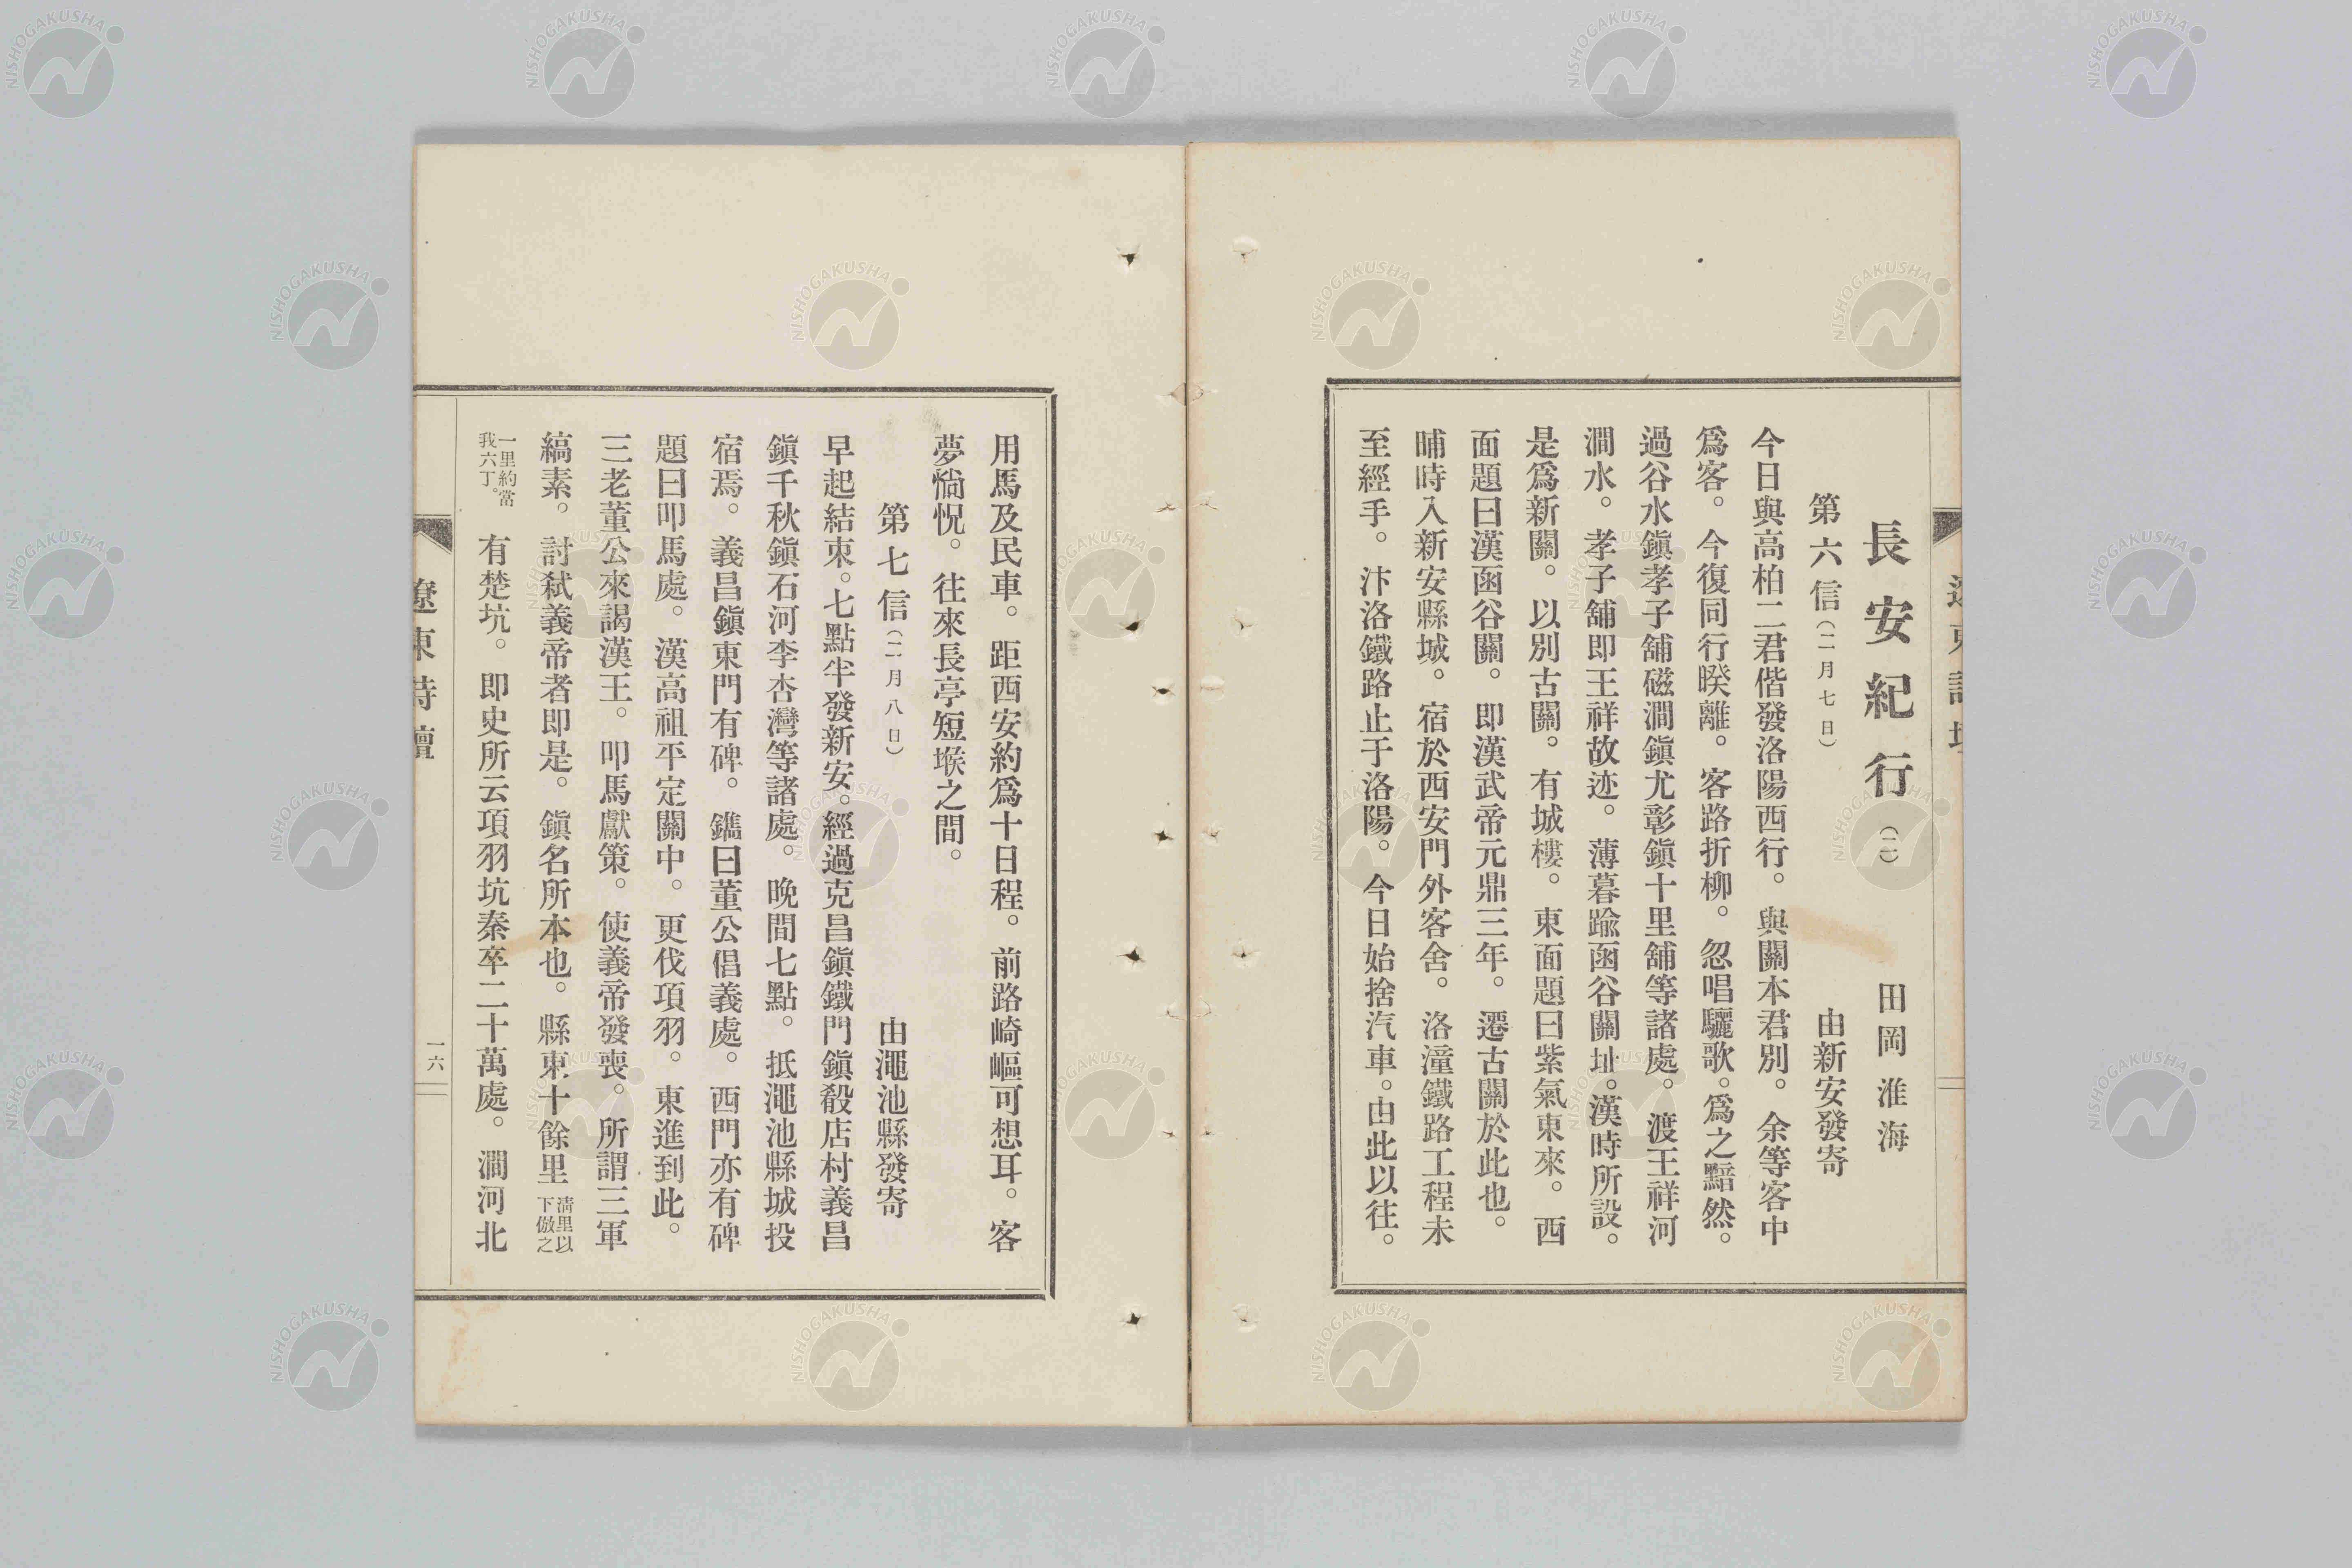 長安紀行(二) 田岡淮海
第六信(二月七日) 由新安發寄
今日與高柏二君偕發洛陽西行。與關本君別。余等客中
爲客。今復同行暌離。客路折柳。忽唱驪歌。爲之黯然。
過谷水鎭孝子舖磁澗鎭尤彰鎭十里舖等諸處。渡王祥河
澗水。孝子舖即王祥故迹。薄暮踰函谷關址。漢時所設。
是爲新關。以別古關。有城樓。東面題曰紫氣東來。西
面題曰漢函谷關。即漢武帝元鼎三年。遷古關於此也。
晡時入新安縣城。宿於西安門外客舍。洛潼鐵路工程未
至經手。汴洛鐵路止于洛陽。今日始捨汽車。由此以往。
用馬及民車。距西安約爲十日程。前路崎嶇可想耳。客
夢惝怳。往來長亭短堠之間。
第七信(二月八日) 由澠池縣發寄
早起結束。七點半發新安。經過克昌鎭鐵門鎭殽店村義昌
鎭千秋鎭石河李杏灣等諸處。晩間七點。抵澠池縣城投
宿焉。義昌鎭東門有碑。鐫曰董公倡義處。西門亦有碑
題曰叩馬處。漢高祖平定關中。更伐項羽。東進到此。
三老董公來謁漢王。叩馬獻策。使義帝發喪。所謂三軍
縞素。討弑義帝者即是。鎭名所本也。縣東十餘里 淸里以下倣之
一里約當我六丁。 有楚坑。即史所云項羽坑秦卒二十萬處。澗河北
遼東詩壇
一六
NISHOGAKUSHA